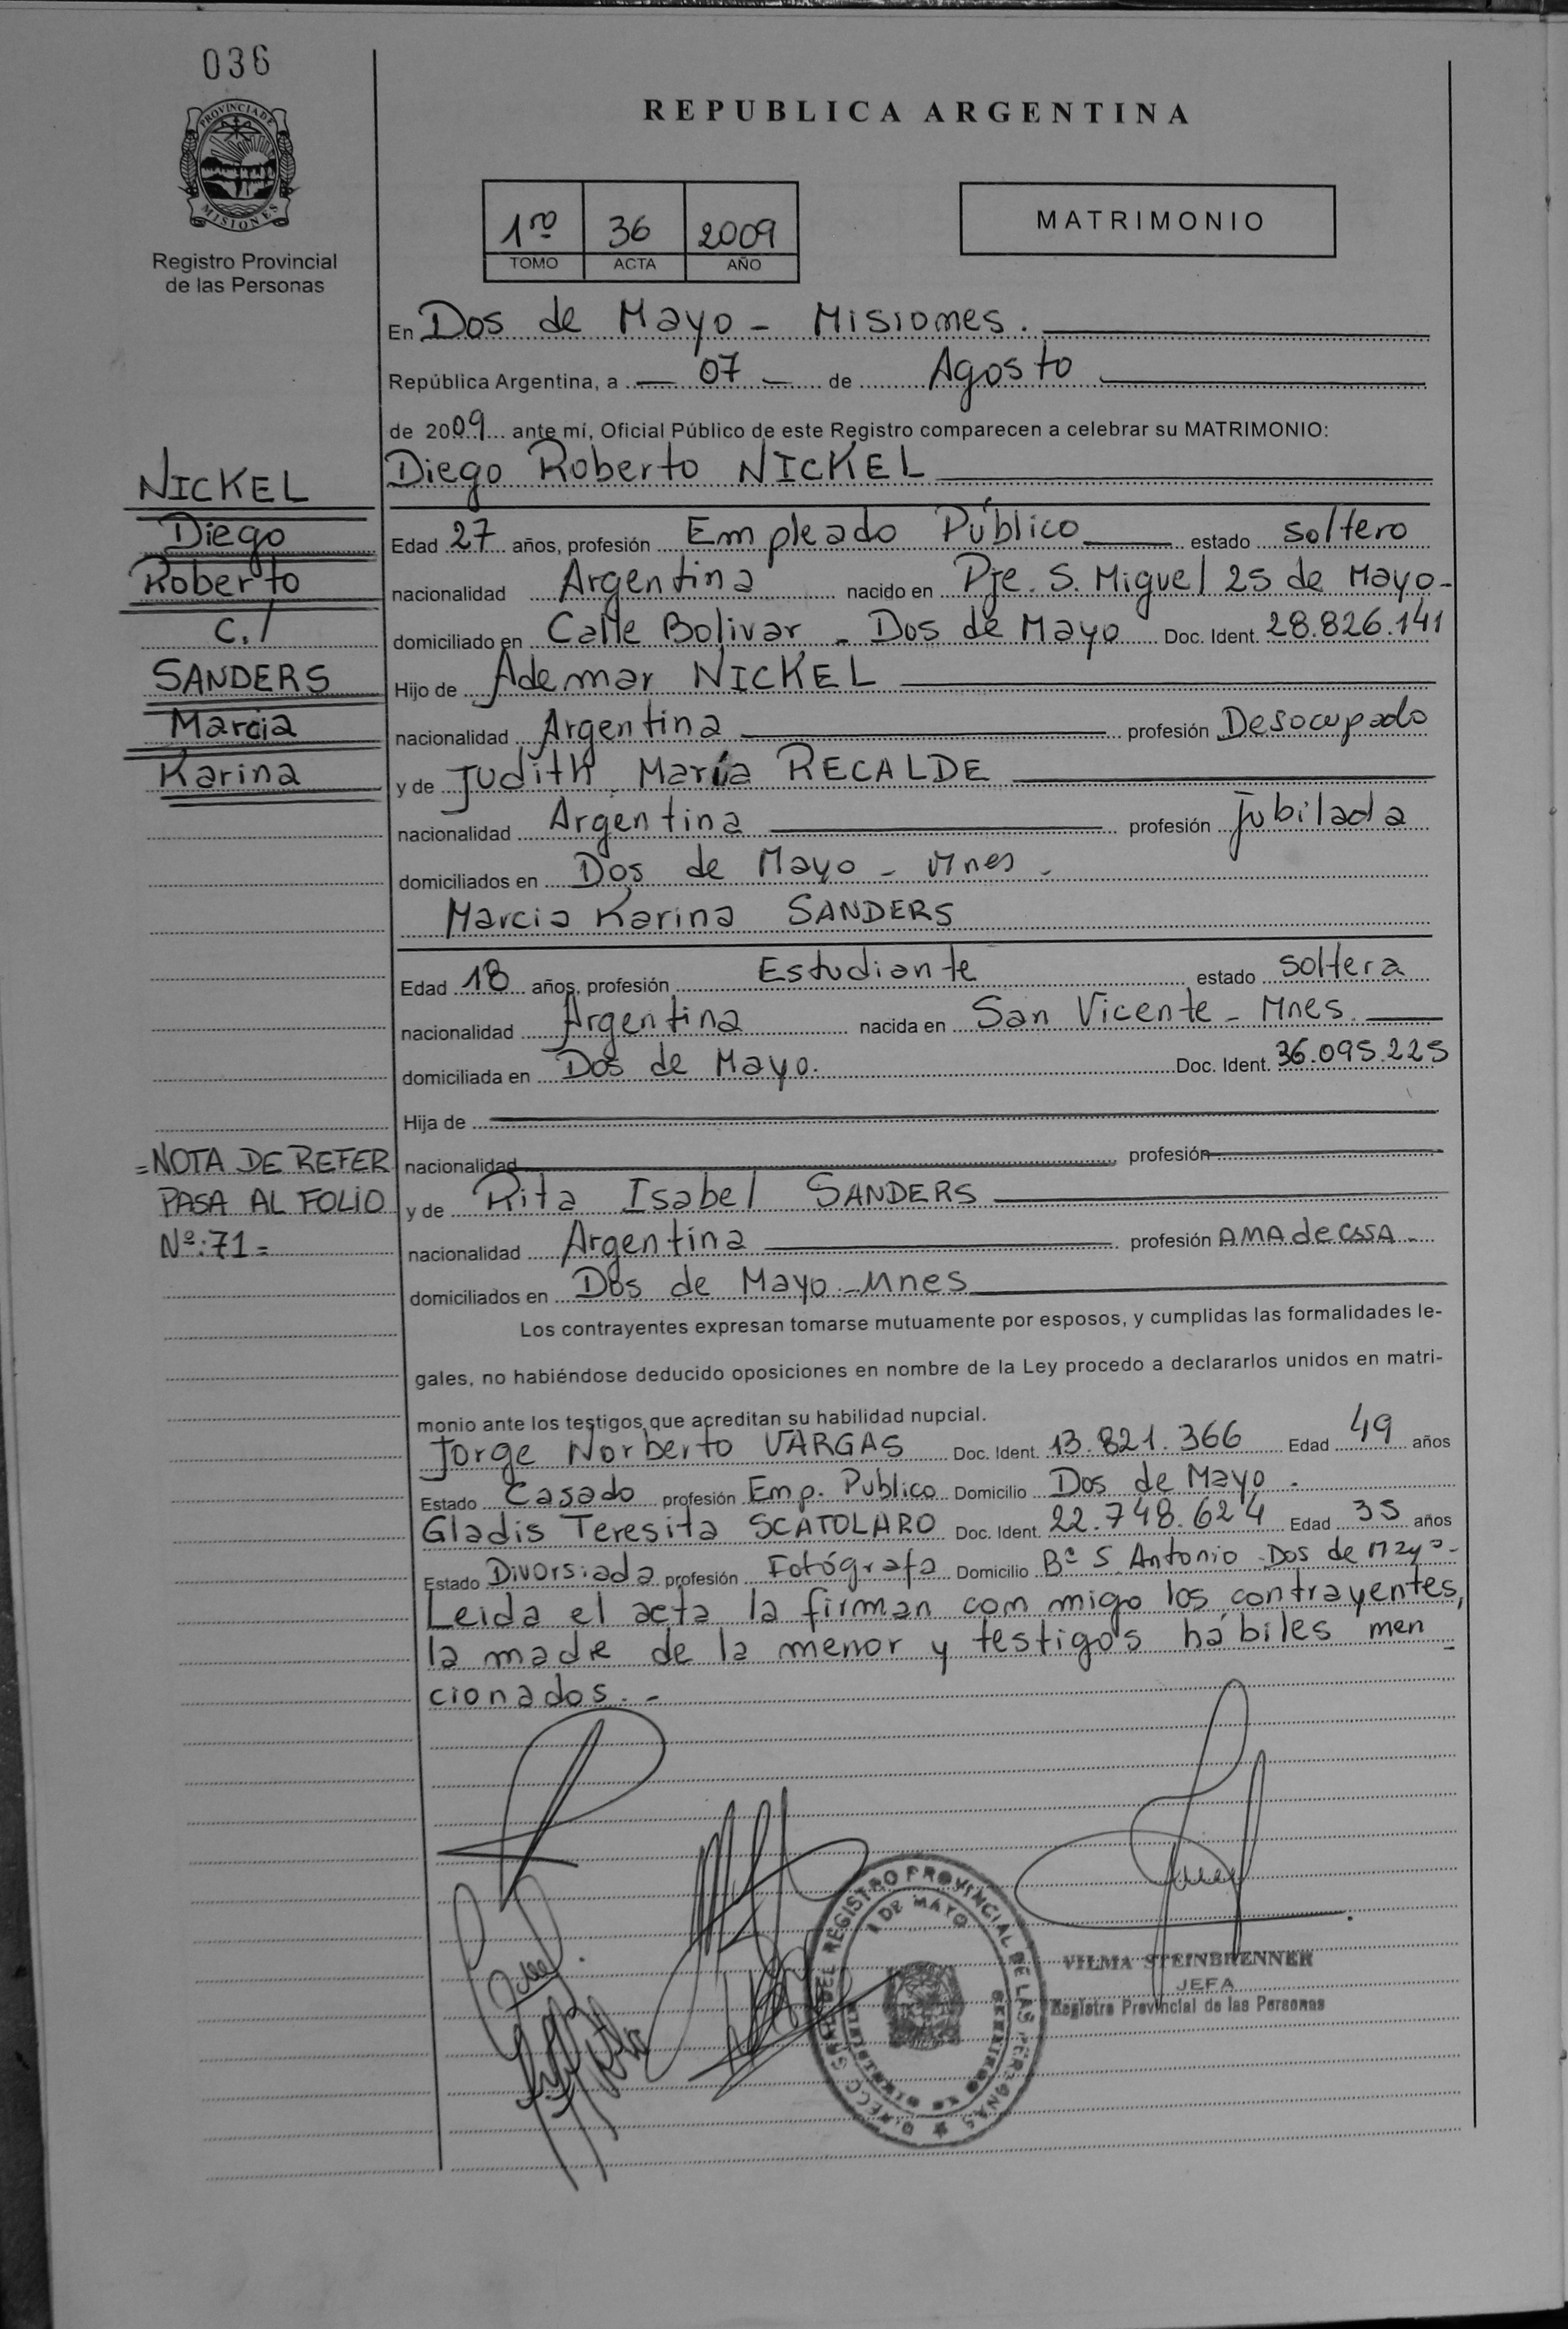 036
PROVINCIA DE
MISIONES
Registro Provincial
de las Personas
REPUBLICA ARGENTINA
1ro 36 2009
TOMO ACTA AÑO
MATRIMONIO
En Dos de Mayo - Misiones.
República Argentina, a 07 de Agosto
de 2009 ante mí, Oficial Público de este Registro comparecen a celebrar su MATRIMONIO:
Diego Roberto NICKEL
NICKEL
Diego
Roberto
c./
SANDERS
Marcia
Karina
Edad 27 años, profesión Empleado Público estado soltero
nacionalidad Argentina nacido en Pje. S. Miguel 25 de Mayo-
domiciliado en Calle Bolivar - Dos de Mayo Doc. Ident. 28.826.141
Hijo de Ademar NICKEL
nacionalidad Argentina profesión Desocupado
y de Judith María RECALDE
nacionalidad Argentina profesión Jubilada
domiciliados en Dos de Mayo - Mnes -
Marcia Karina SANDERS
Edad 18 años, profesión Estudiante estado soltera
nacionalidad Argentina nacida en San Vicente - Mnes.
domiciliada en Dos de Mayo. Doc. Ident. 36.095.225
Hija de
nacionalidad profesión
y de Rita Isabel SANDERS
nacionalidad Argentina profesión AMA de CASA -
domiciliados en Dos de Mayo - Mnes
=NOTA DE REFER
PASA AL FOLIO
Nº:71=
Los contrayentes expresan tomarse mutuamente por esposos, y cumplidas las formalidades le-
gales, no habiéndose deducido oposiciones en nombre de la Ley procedo a declararlos unidos en matri-
monio ante los testigos que acreditan su habilidad nupcial.
Jorge Norberto VARGAS Doc. Ident. 13.821.366 Edad 49 años
Estado Casado profesión Emp. Publico Domicilio Dos de Mayo.
Gladis Teresita SCATOLARO Doc. Ident. 22.748.624 Edad 35 años
Estado Divorsiada profesión Fotógrafa Domicilio Bº S. Antonio Dos de Mayo-
Leida el acta la firman con migo los contrayentes,
la madre de la menor y testigos habiles men-
cionados.-
REGISTRO PROVINCIAL DE LAS PERSONAS
DE MAYO
VILMA STEINBRENNER
JEFA
Registro Provincial de las Personas